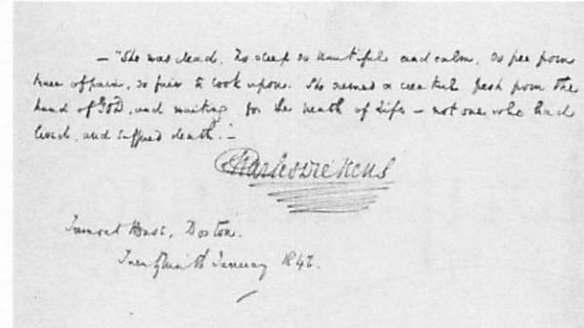 — "She was dead. No sleep so beautiful and calm, so free from
trace of pain, so fair to look upon. She seemed a creature fresh from the
hand of GOD, and waiting for the breath of Life – not one who had
lived, and suffered death." —
Charles Dickens
Tremont House, Boston.
Twenty Ninth January 1842.